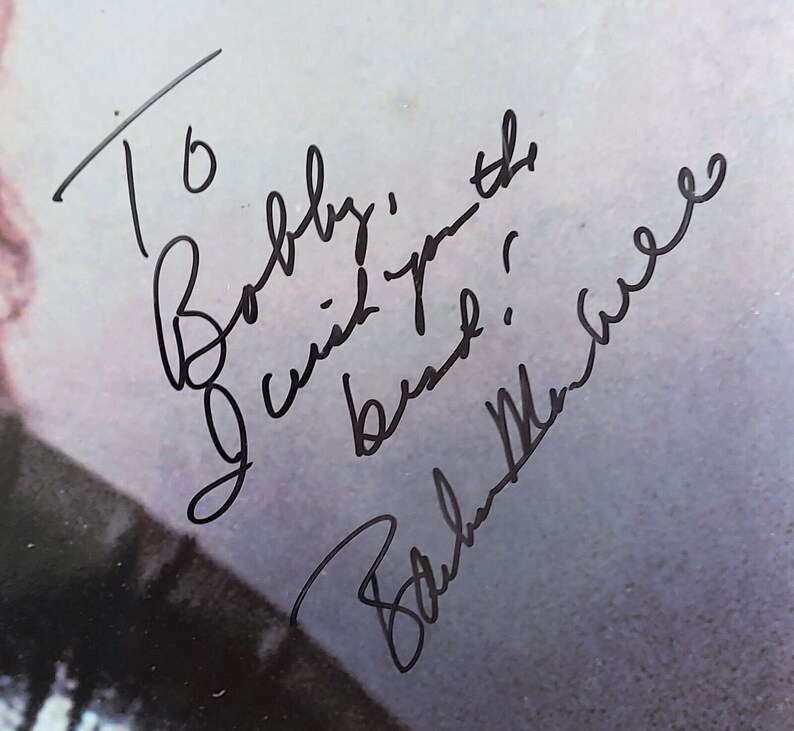 To
Bobby,
I wish you the
best!
Barbara Mandrell